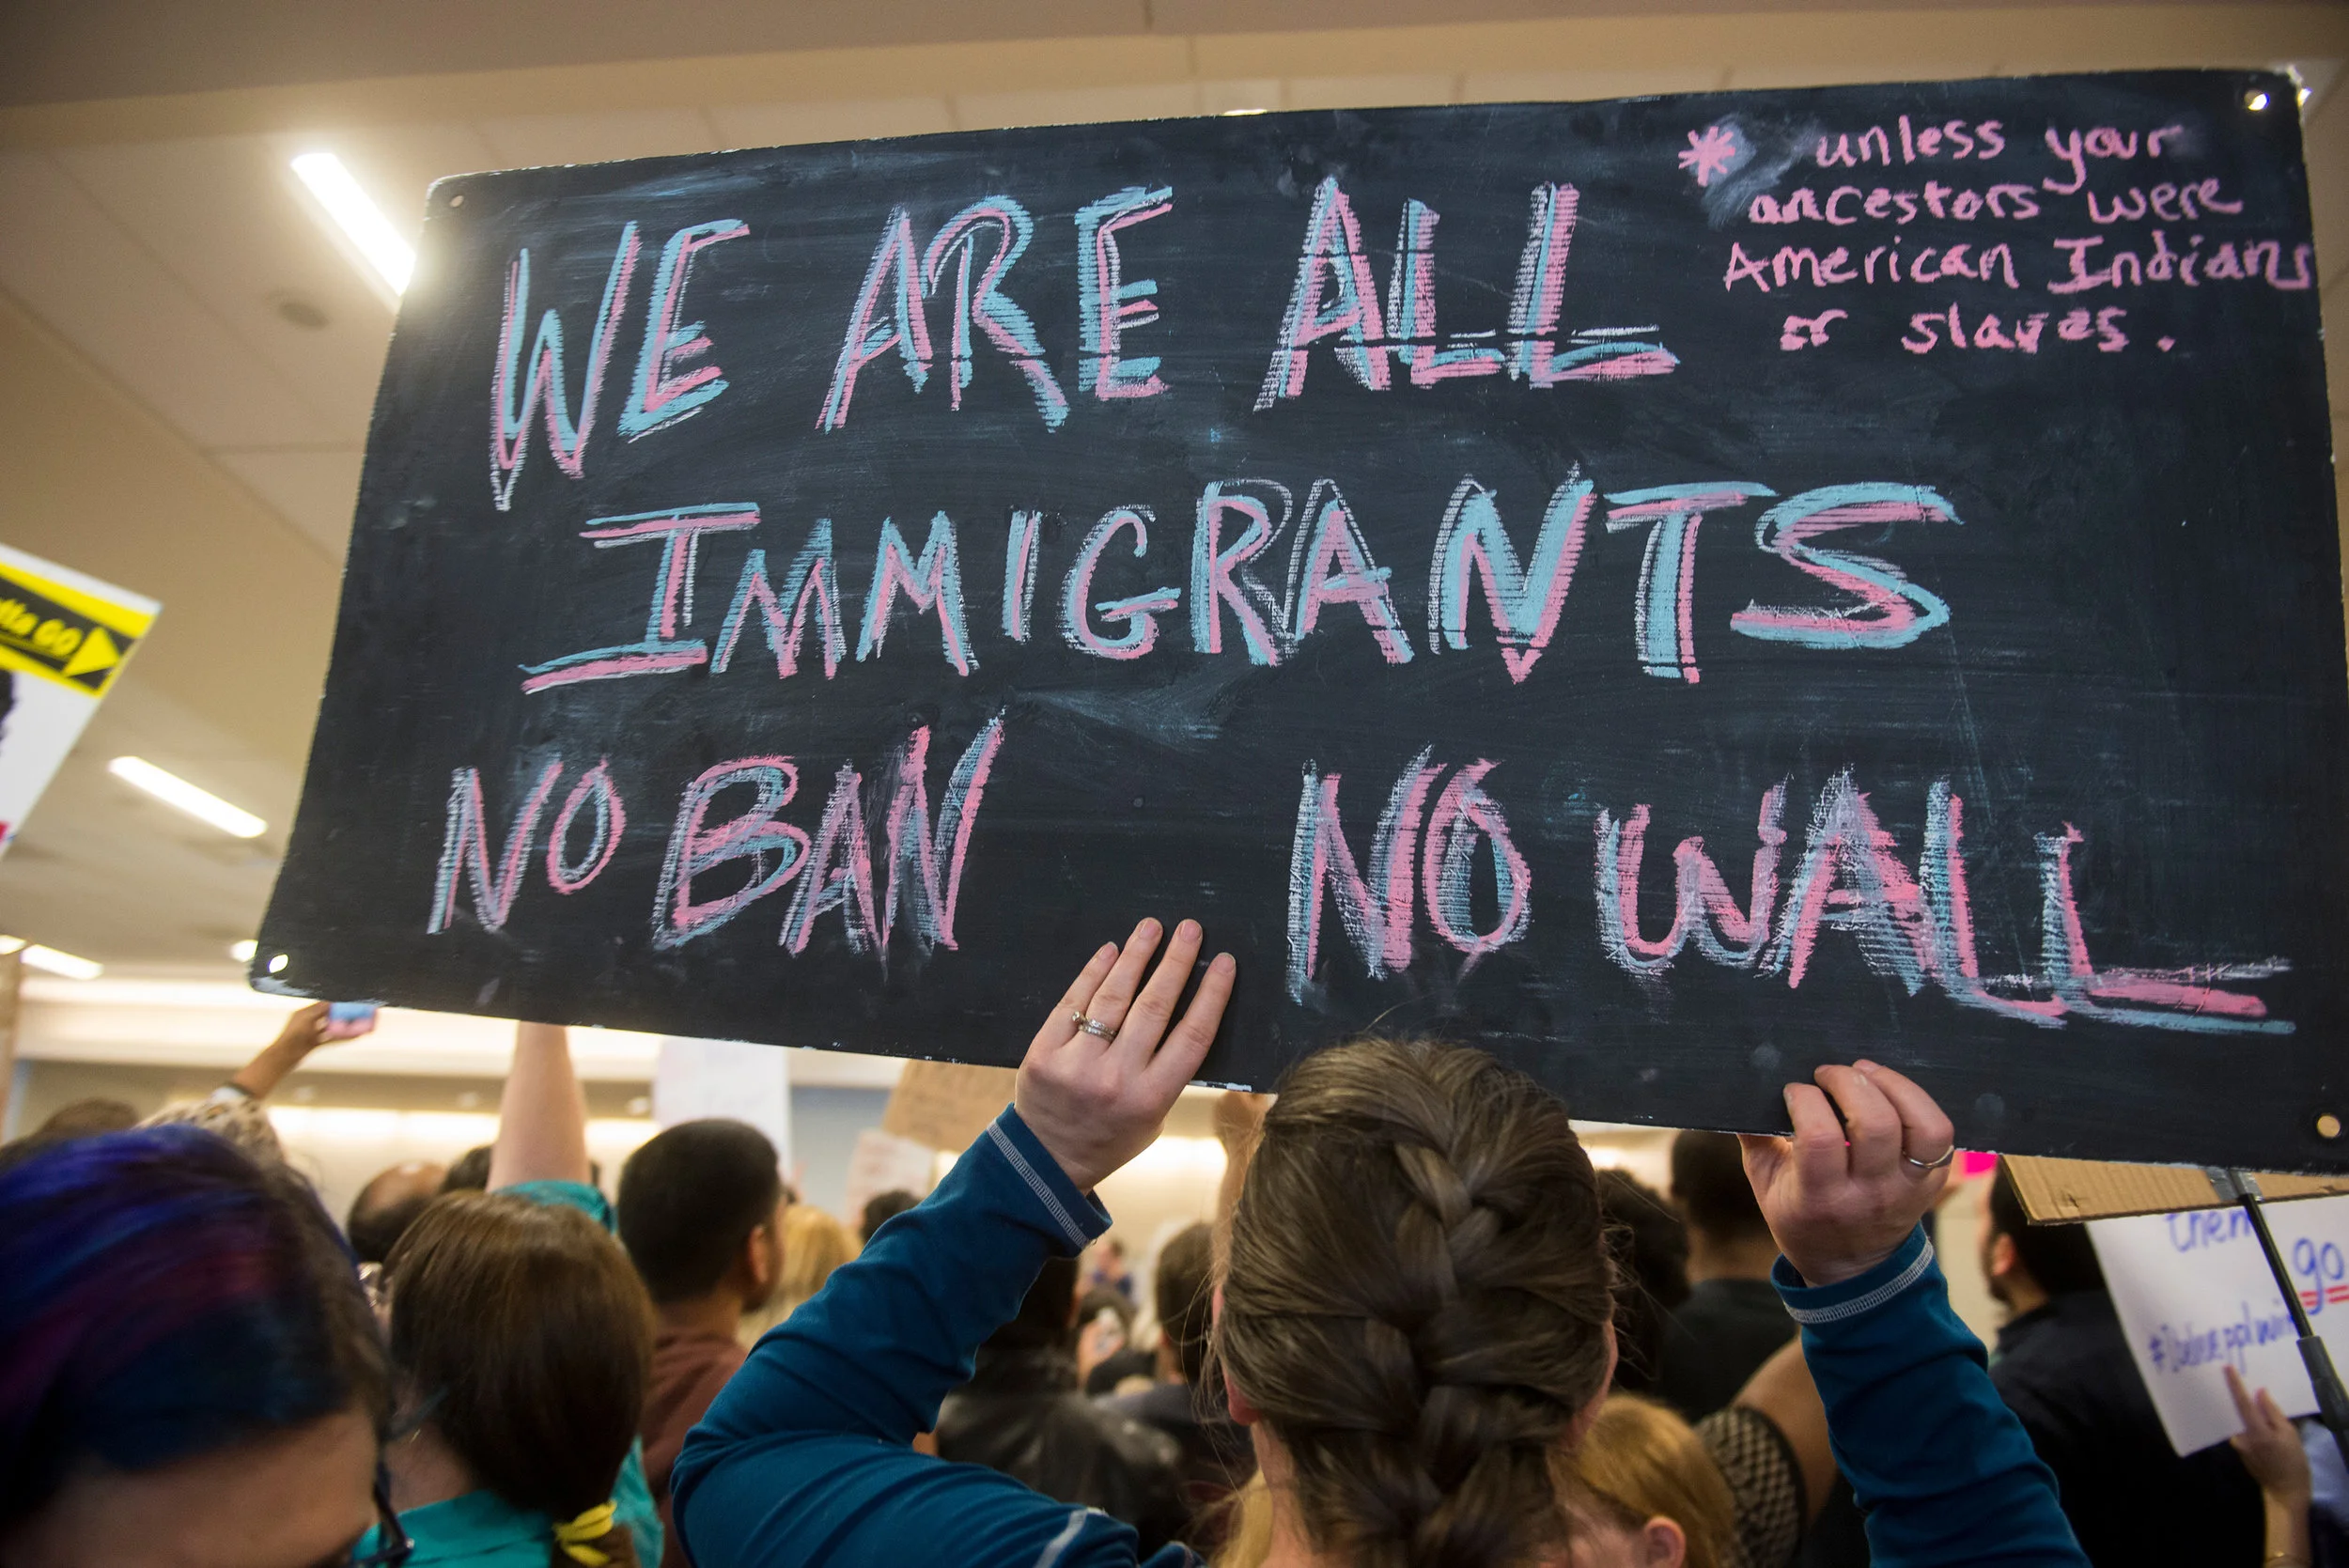 WE ARE ALL
* unless your
ancestors were
American Indians
or slaves.
IMMIGRANTS
NO BAN NO WALL
GO
them
go